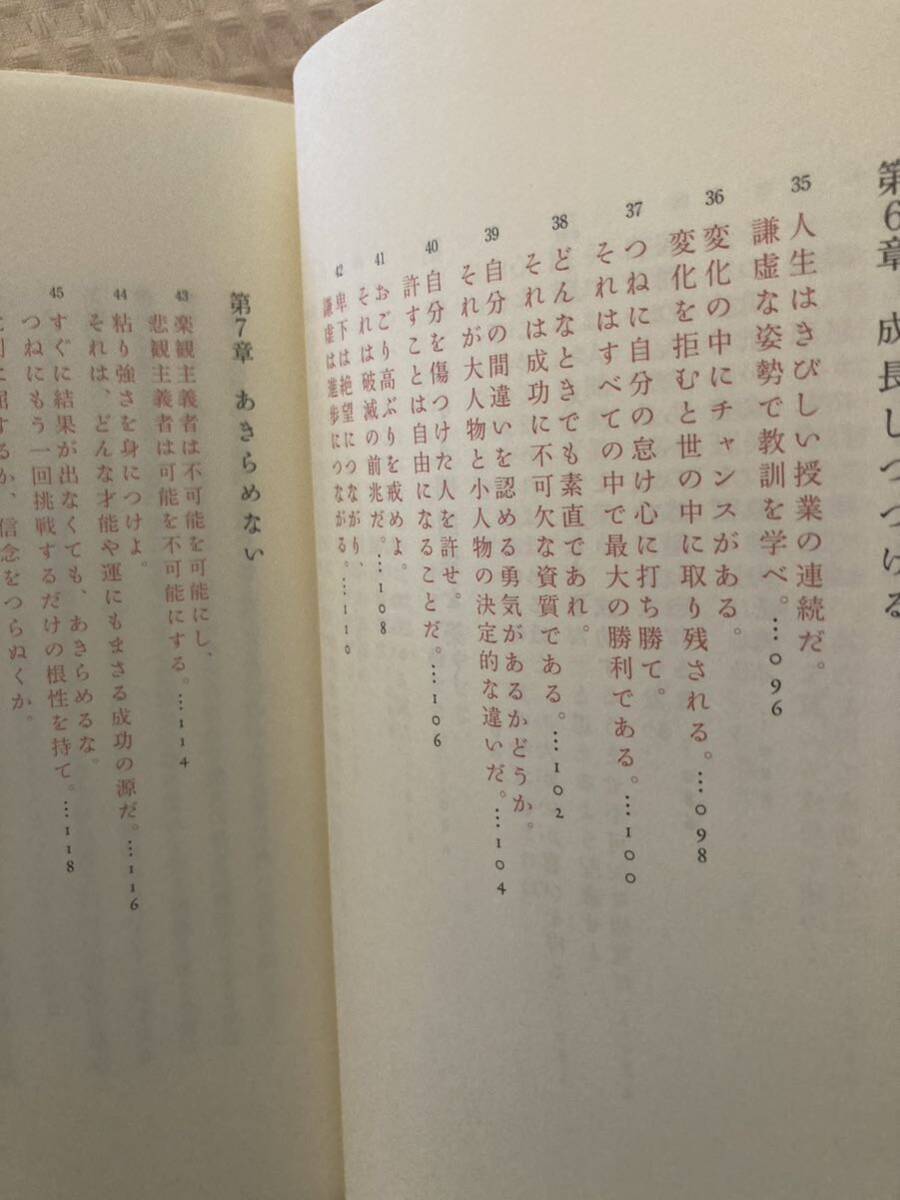 第6章 成長しつづける
35
人生はきびしい授業の連続だ。
謙虚な姿勢で教訓を学べ。…096
36
変化の中にチャンスがある。
変化を拒むと世の中に取り残される。…098
37
つねに自分の怠け心に打ち勝て。
それはすべての中で最大の勝利である。…100
38
どんなときでも素直であれ。
それは成功に不可欠な資質である。…102
39
自分の間違いを認める勇気があるかどうか。
それが大人物と小人物の決定的な違いだ。…104
40
自分を傷つけた人を許せ。
許すことは自由になることだ。…106
41
おごり高ぶりを戒めよ。
それは破滅の前兆だ。…108
42
卑下は絶望につながり、
謙虚は進歩につながる。…110
第7章 あきらめない
43
楽観主義者は不可能を可能にし、
悲観主義者は可能を不可能にする。…114
44
粘り強さを身につけよ。
それは、どんな才能や運にもまさる成功の源だ。…116
45
すぐに結果が出なくても、あきらめるな。
つねにもう一回挑戦するだけの根性を持て。…118
に屈するか、信念をつらぬくか。